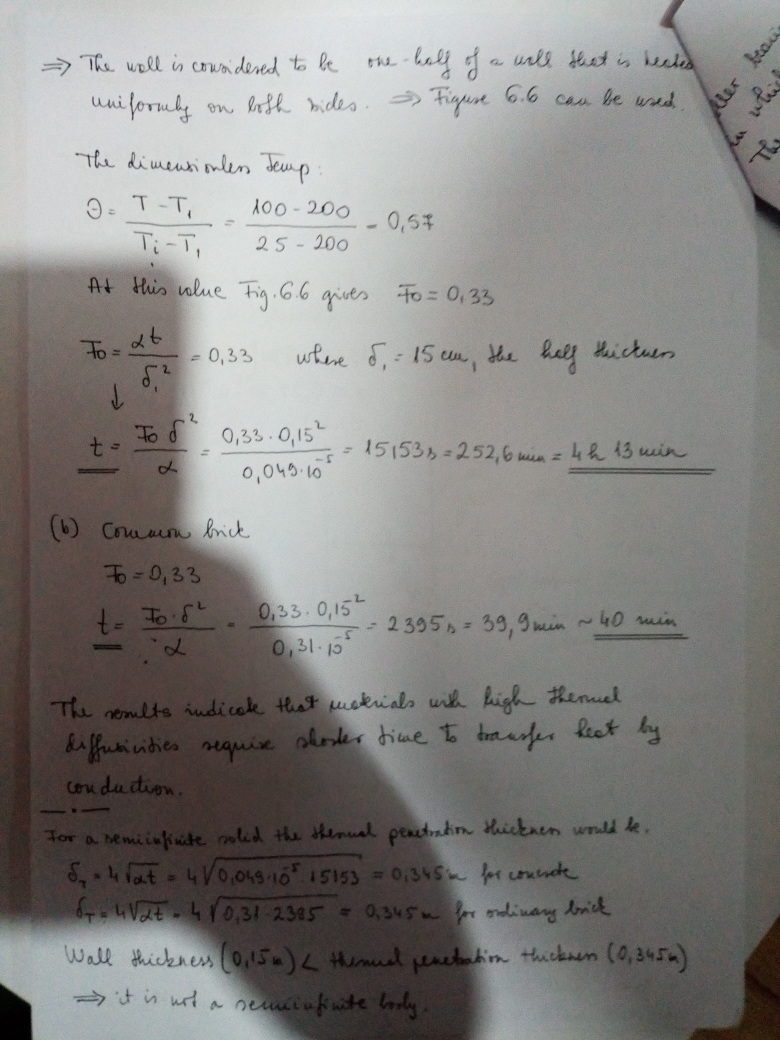 ⇒ The wall is considered to be one-half of a wall that is heated
uniformly on both sides. ⇒ Figure 6.6 can be used.
The dimensionless Temp:
Θ = (T - T₁)/(Tᵢ - T₁) = (100 - 200)/(25 - 200) = 0,57
At this value Fig. 6.6 gives Fo = 0,33
Fo = αt/δ₁² = 0,33 where δ₁ = 15 cm, the half thickness
↓
t = Fo δ²/α = 0,33 · 0,15²/0,049·10⁻⁵ = 15153 s = 252,6 min = 4 h 13 min
(b) Common brick
Fo = 0,33
t = Fo · δ²/α = 0,33 · 0,15²/0,31 · 10⁻⁵ = 2395 s = 39,9 min ~ 40 min
The results indicate that materials with high thermal
diffusivities require shorter time to transfer heat by
conduction.
For a semiinfinite solid the thermal penetration thickness would be.
δT = 4√αt = 4√0,049·10⁻⁵·15153 = 0,345 m for concrete
δT = 4√αt = 4√0,31·2385 = 0,345 m for ordinary brick
Wall thickness (0,15 m) < thermal penetration thickness (0,345 m)
⇒ it is not a semiinfinite body.
in
The